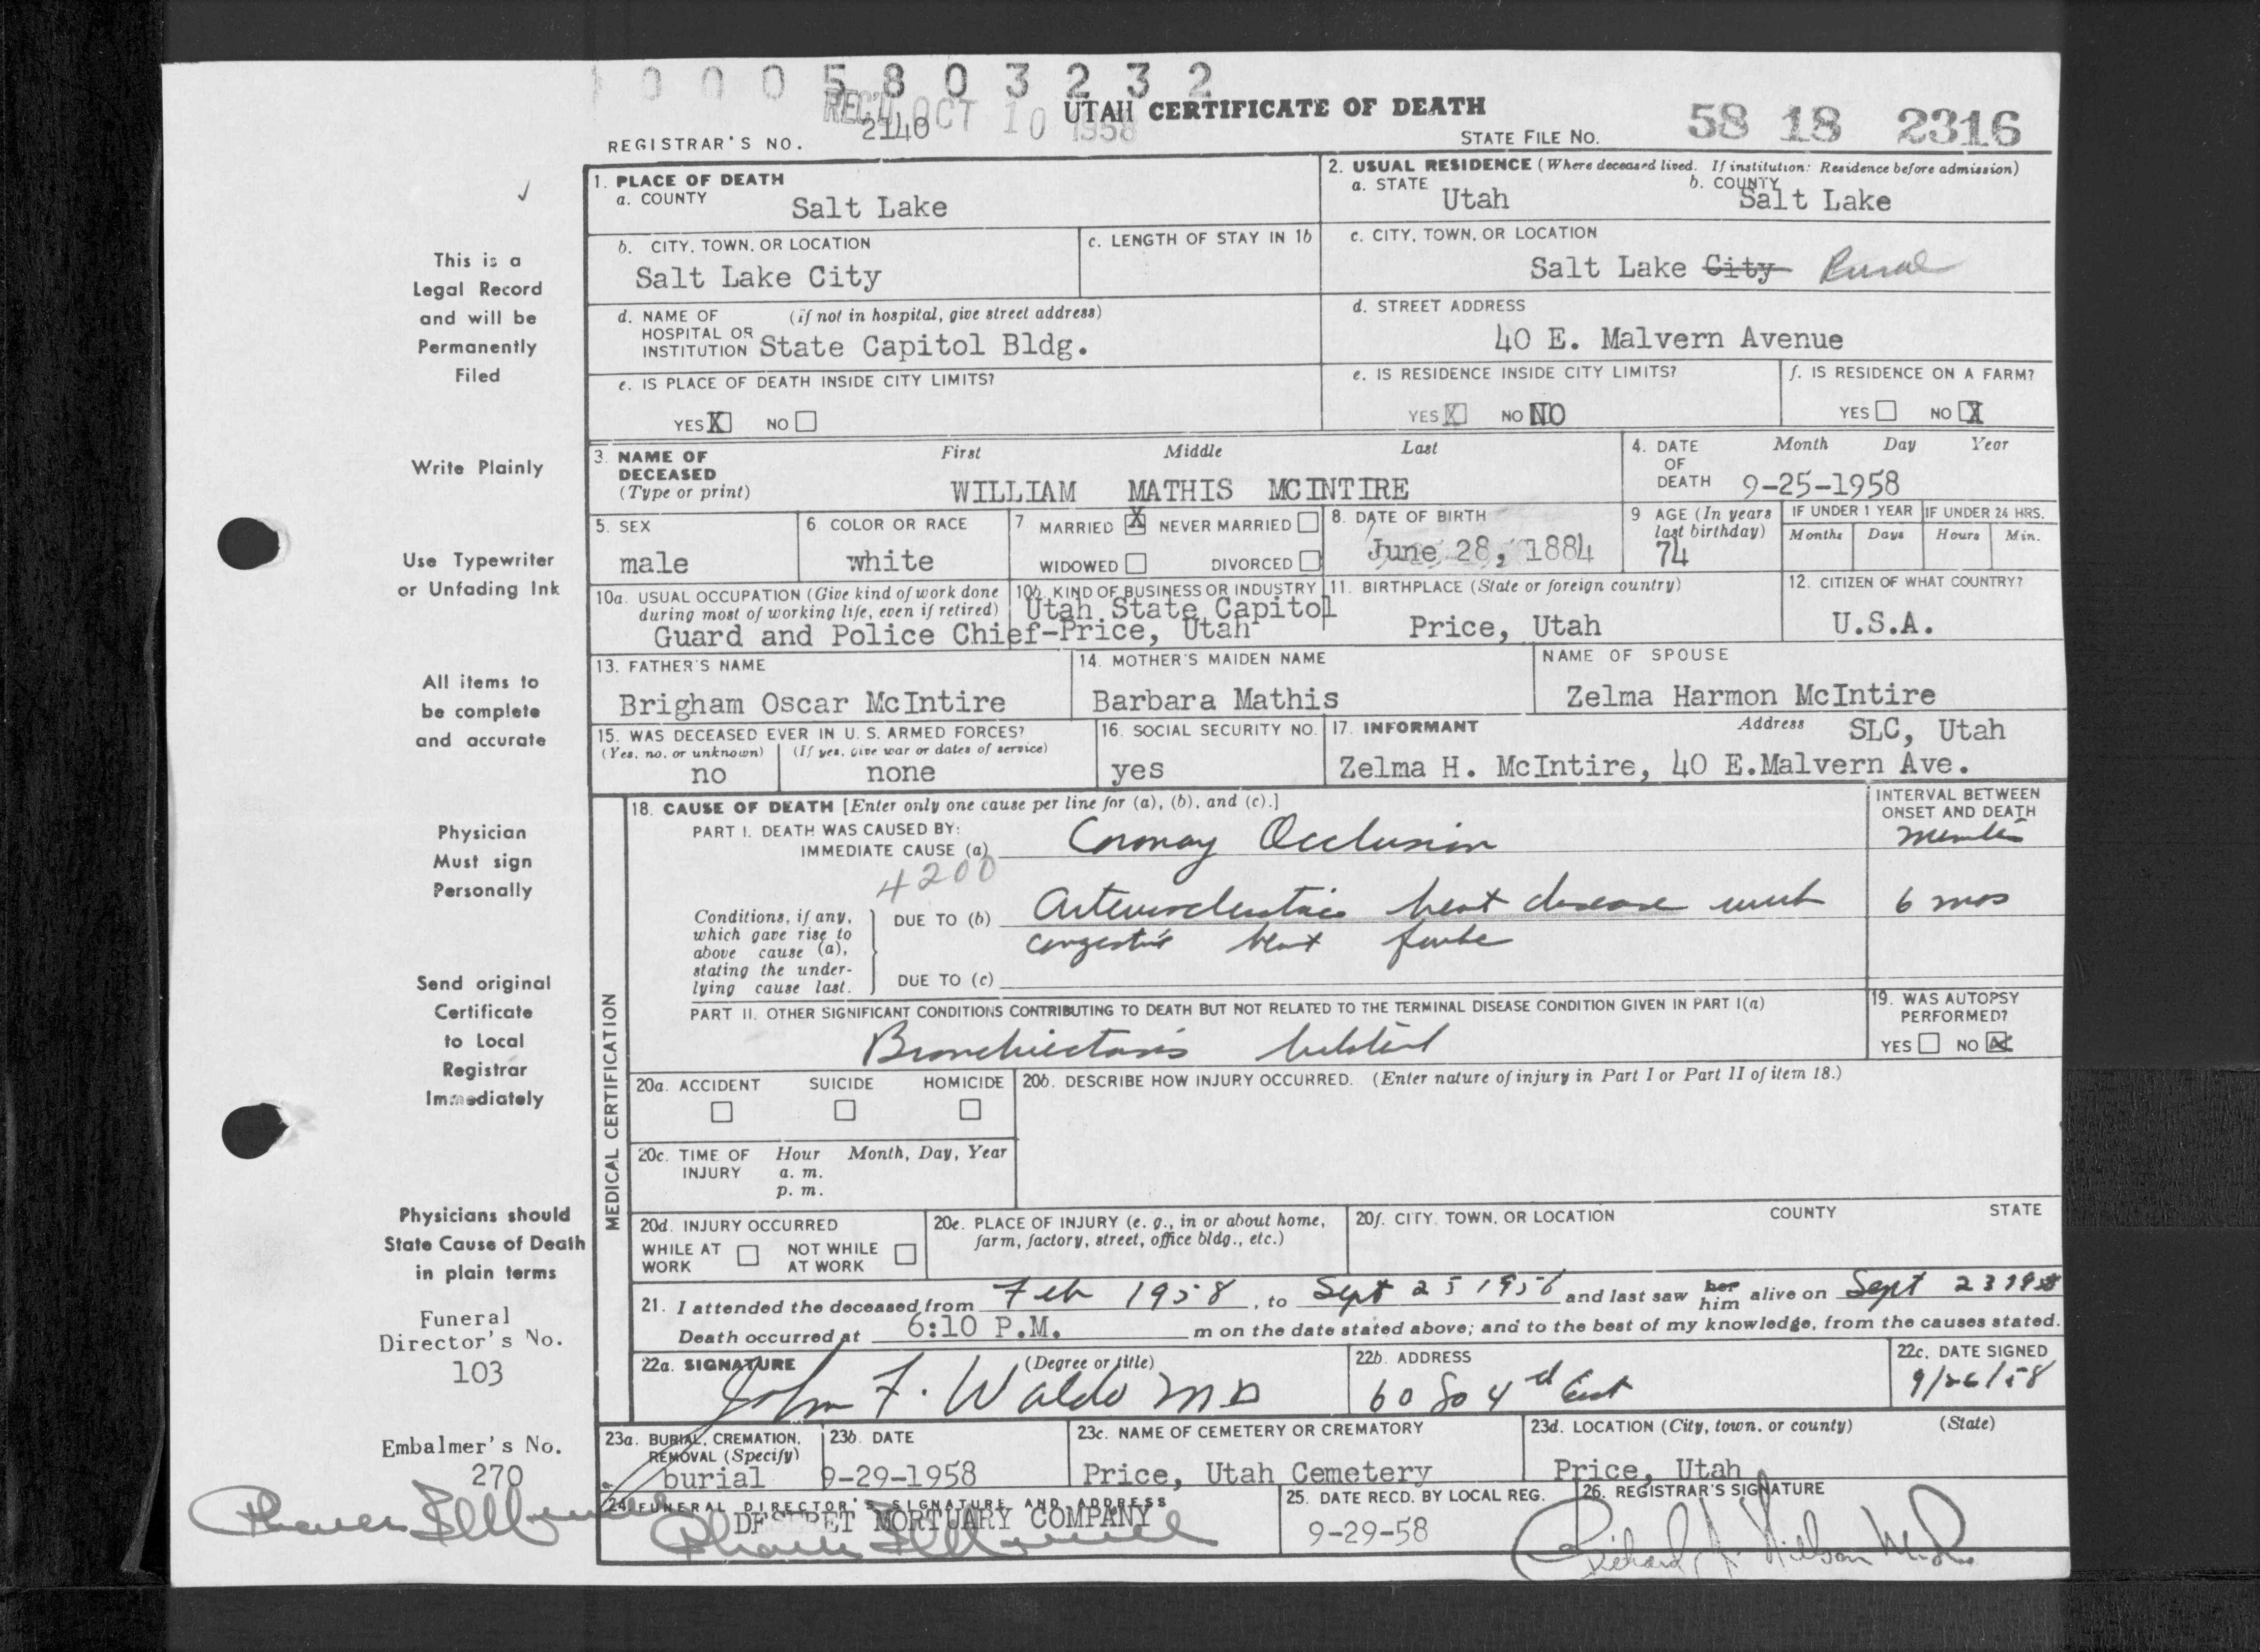 0 0 0 5 8 0 3 2 3 2
REC'D OCT 10 1958
UTAH CERTIFICATE OF DEATH
REGISTRAR'S NO. 2140
STATE FILE No. 58 18 2316
1. PLACE OF DEATH
a. COUNTY
Salt Lake
2. USUAL RESIDENCE (Where deceased lived. If institution: Residence before admission)
a. STATE
Utah
b. COUNTY
Salt Lake
b. CITY, TOWN, OR LOCATION
Salt Lake City
c. LENGTH OF STAY IN 1b
c. CITY, TOWN, OR LOCATION
Salt Lake City Rural
d. NAME OF HOSPITAL OR INSTITUTION (if not in hospital, give street address)
State Capitol Bldg.
d. STREET ADDRESS
40 E. Malvern Avenue
e. IS PLACE OF DEATH INSIDE CITY LIMITS?
YES X NO
e. IS RESIDENCE INSIDE CITY LIMITS?
YES X NO NO
f. IS RESIDENCE ON A FARM?
YES NO X
3. NAME OF DECEASED (Type or print)
First Middle Last
WILLIAM MATHIS MCINTIRE
4. DATE OF DEATH
Month Day Year
9-25-1958
5. SEX
male
6. COLOR OR RACE
white
7 MARRIED X NEVER MARRIED
WIDOWED DIVORCED
8. DATE OF BIRTH
June 28, 1884
9 AGE (In years last birthday)
74
IF UNDER 1 YEAR
Months Days
IF UNDER 24 HRS.
Hours Min.
10a. USUAL OCCUPATION (Give kind of work done during most of working life, even if retired)
Guard and Police Chief-Price, Utah
10b. KIND OF BUSINESS OR INDUSTRY
Utah State Capitol
11. BIRTHPLACE (State or foreign country)
Price, Utah
12. CITIZEN OF WHAT COUNTRY?
U.S.A.
13. FATHER'S NAME
Brigham Oscar McIntire
14. MOTHER'S MAIDEN NAME
Barbara Mathis
NAME OF SPOUSE
Zelma Harmon McIntire
15. WAS DECEASED EVER IN U. S. ARMED FORCES?
(Yes, no, or unknown) (If yes, give war or dates of service)
no none
16. SOCIAL SECURITY NO.
yes
17. INFORMANT Address
SLC, Utah
Zelma H. McIntire, 40 E.Malvern Ave.
MEDICAL CERTIFICATION
18. CAUSE OF DEATH [Enter only one cause per line for (a), (b), and (c).]
INTERVAL BETWEEN ONSET AND DEATH
PART I. DEATH WAS CAUSED BY:
IMMEDIATE CAUSE (a) Coronary Occlusion
minutes
4200
Conditions, if any, which gave rise to above cause (a), stating the underlying cause last.
DUE TO (b) Arteriosclerotic heart disease with
6 mos
congestive heart failure
DUE TO (c)
PART II. OTHER SIGNIFICANT CONDITIONS CONTRIBUTING TO DEATH BUT NOT RELATED TO THE TERMINAL DISEASE CONDITION GIVEN IN PART I(a)
Bronchiectasis bilateral
19. WAS AUTOPSY PERFORMED?
YES NO X
20a. ACCIDENT SUICIDE HOMICIDE
20b. DESCRIBE HOW INJURY OCCURRED. (Enter nature of injury in Part I or Part II of item 18.)
20c. TIME OF INJURY
Hour Month, Day, Year
a. m.
p. m.
20d. INJURY OCCURRED
WHILE AT WORK NOT WHILE AT WORK
20e. PLACE OF INJURY (e. g., in or about home, farm, factory, street, office bldg., etc.)
20f. CITY, TOWN, OR LOCATION COUNTY STATE
21. I attended the deceased from Feb 1958, to Sept 25 1958 and last saw her him alive on Sept 23 1958
Death occurred at 6:10 P.M. m on the date stated above; and to the best of my knowledge, from the causes stated.
22a. SIGNATURE (Degree or title)
John F. Waldo MD
22b. ADDRESS
60 So 4th East
22c. DATE SIGNED
9/26/58
23a. BURIAL, CREMATION, REMOVAL (Specify)
burial
23b. DATE
9-29-1958
23c. NAME OF CEMETERY OR CREMATORY
Price, Utah Cemetery
23d. LOCATION (City, town, or county) (State)
Price, Utah
24. FUNERAL DIRECTOR'S SIGNATURE AND ADDRESS
DESERET MORTUARY COMPANY
25. DATE RECD. BY LOCAL REG.
9-29-58
26. REGISTRAR'S SIGNATURE
Richard
This is a
Legal Record
and will be
Permanently
Filed
Write Plainly
Use Typewriter
or Unfading Ink
All items to
be complete
and accurate
Physician
Must sign
Personally
Send original
Certificate
to Local
Registrar
Immediately
Physicians should
State Cause of Death
in plain terms
Funeral
Director's No.
103
Embalmer's No.
270